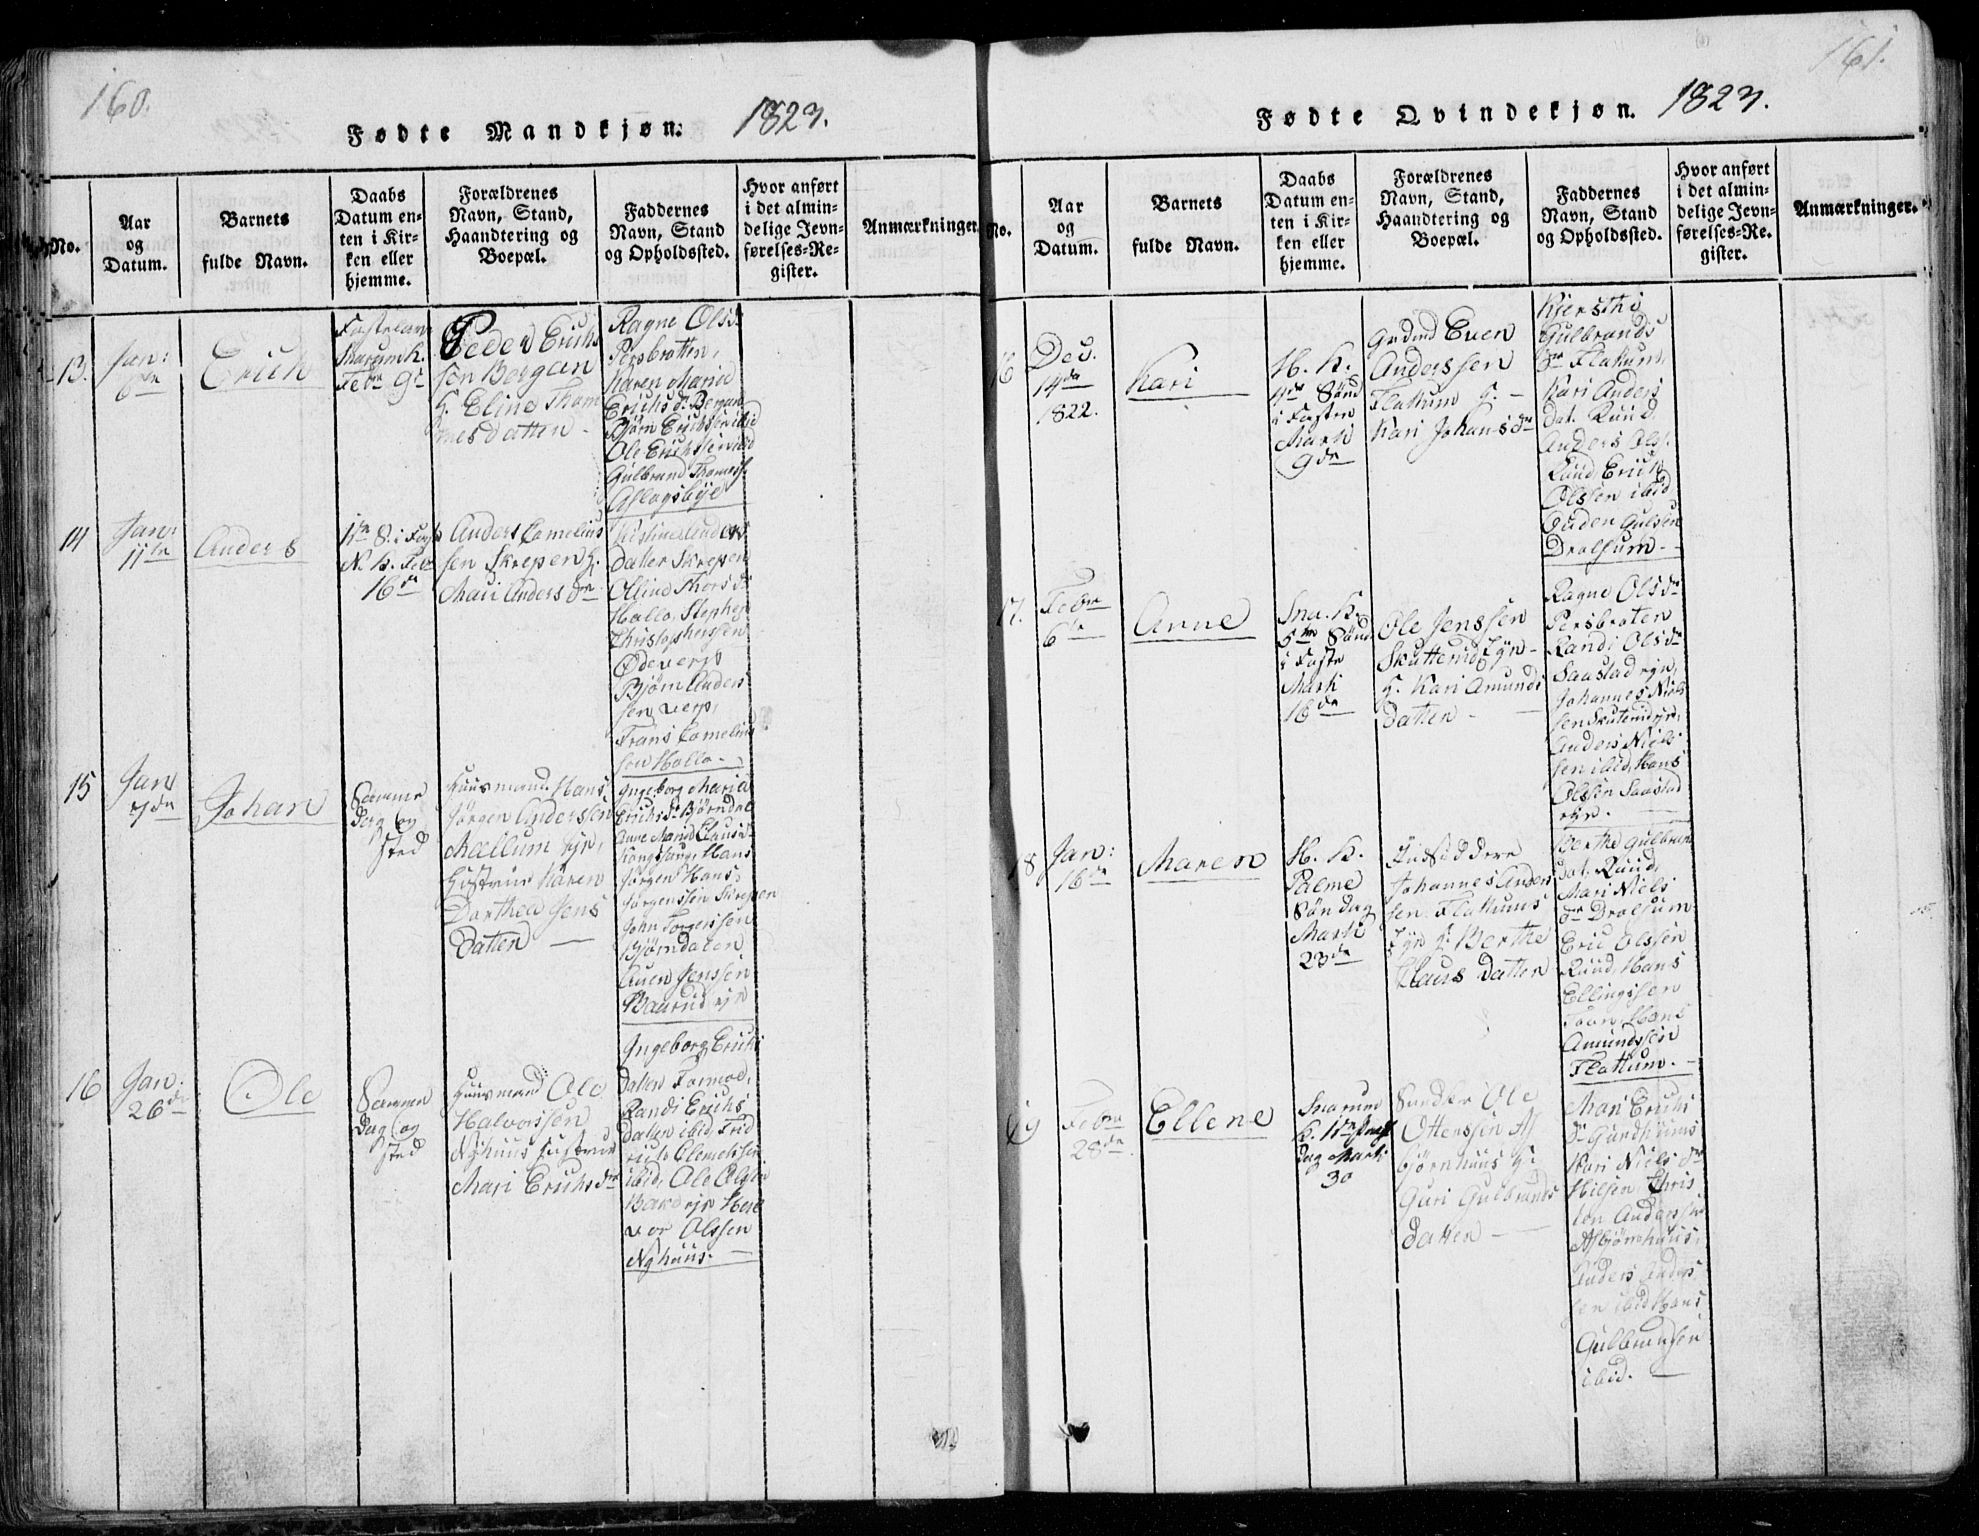 160.
Fødte Mandkjøn. 1823.
No.
Aar
og
Datum.
Barnets
fulde Navn.
Daabs
Datum en-
ten i Kir-
ken eller
hjemme.
Forældrenes
Navn, Stand,
Haandtering og
Boepæl.
Faddernes
Navn, Stand
og Opholdssted.
Hvor anført
i det almin-
delige Jevn-
førelses-Re-
gister.
Anmærkninger.
13.
Jan:
6te
Erich
Snarum K.
Febr 9de
Peder Erichs
sen Bergan
H. Eline Thom
mesdatter
Ragne Olsdr
Persbratten,
Karen Maria
Erichs dr Bergan
Bjørn Erichsen ibid
Ole Erichssen ibid
Gulbrand Thomess.
Aslagsbye
14
Jan:
11te
Anders
1te S. i Faste
N. K. Febr
16de
Anders Cornelius
sen Skrepen H.
Mari Anders dr
Kistine Anders
datter Skrepen
Oline Thors dr
Hollo, Stephen
Christophersen
Ødeverp
Bjørn Anders
sen verp,
Frans Cornelius
sen Hollo.
15
Jan
7de
Johan
Samme
Dag og
sted
Huusmand Hans
Jørgen Anderssen
Mællum ejr,
Hustrue Karen
Dorthea Jens
Datter
Ingeborg Maria
Erichs dr Bjørndal
Anne Maria Claus dr
Kongshaug, Hans
Jørgen Hans
Jørgenssen Skrepen
John Torgerssen
Bjørndalen
Auen Jenssen
Baarud ejr
16
Jan:
26de
Ole
Samme
Dag og
sted
Huusmand Ole
Halvorssen
Nyhuus Hustrue
Mari Erichs dr
Ingeborg Erichs
Datter Formoe,
Randi Erichs
datter ibid, Frid
rich Clemetsen
ibid, Ole Olsen
ejr Hal
vor Olssen
Nyhuus.
161.
Fødte Qvindekjøn. 1823.
No.
Aar
og
Datum.
Barnets
fulde Navn.
Daabs
Datum en-
ten i Kir-
ken eller
hjemme.
Forældrenes
Navn, Stand,
Haandtering og
Boepæl.
Faddernes
Navn, Stand
og Opholdssted.
Hvor anført
i det almin-
delige Jevn-
førelses-Re-
gister.
Anmærkninger.
16
Dec.
14de
1822.
Kari
H. K.
4de Sønd
i Fasten
Marti
9de
Gudmd Even
Anderssen
Flattum H.
Kari Johansdr
Kjersthi
Gulbrands
dr Flattum,
Kari Anders
dat. Ruud
Anders Ols.
Ruud, Erich
Olssen ibid
Guden Gulsen
Drolsum
17.
Febr
6te
Anne
Sna. K.
5te Sønd
i Faste
Marti
16de
Ole Jenssen
Skutterud Ejr
H. Kari Amunds
datter
Ragne Olsdr
Persbraten
Randi Olsdr
Saastad ejr,
Johannes Niels
sen Skuterud ejr,
Anders Niels
sen ibid, Hans
Olssen Saastad
ejr.
18
Jan:
16de
Maren
H. K.
Palme
Søndag
Marti
23de
Indsiddere
Johannes Anders
sen Flattums
Ejr H. Berthe
Claus Datter
Berthe Gulbran
dat. Ruud,
Mari Niels
dr Drolsum
Eric Olssen
Ruud, Hans
Ellingssen
Foss, Hans
Amundssen
Flattum.
19
Febr
28de
Ellene
Snarum
K. 1te Paaske
dag Marti
30
Ole
Otterssen As
bjørnhuus H.
Guri Gulbrands
datter
Mari Erichs
dr Gundhuus
Kari Niels dr
Hilsen, Chris
ten Anderssen
Asbjørnhuus,
Anders Anders
sen ibid, Hans
Gulbransen
ibid.